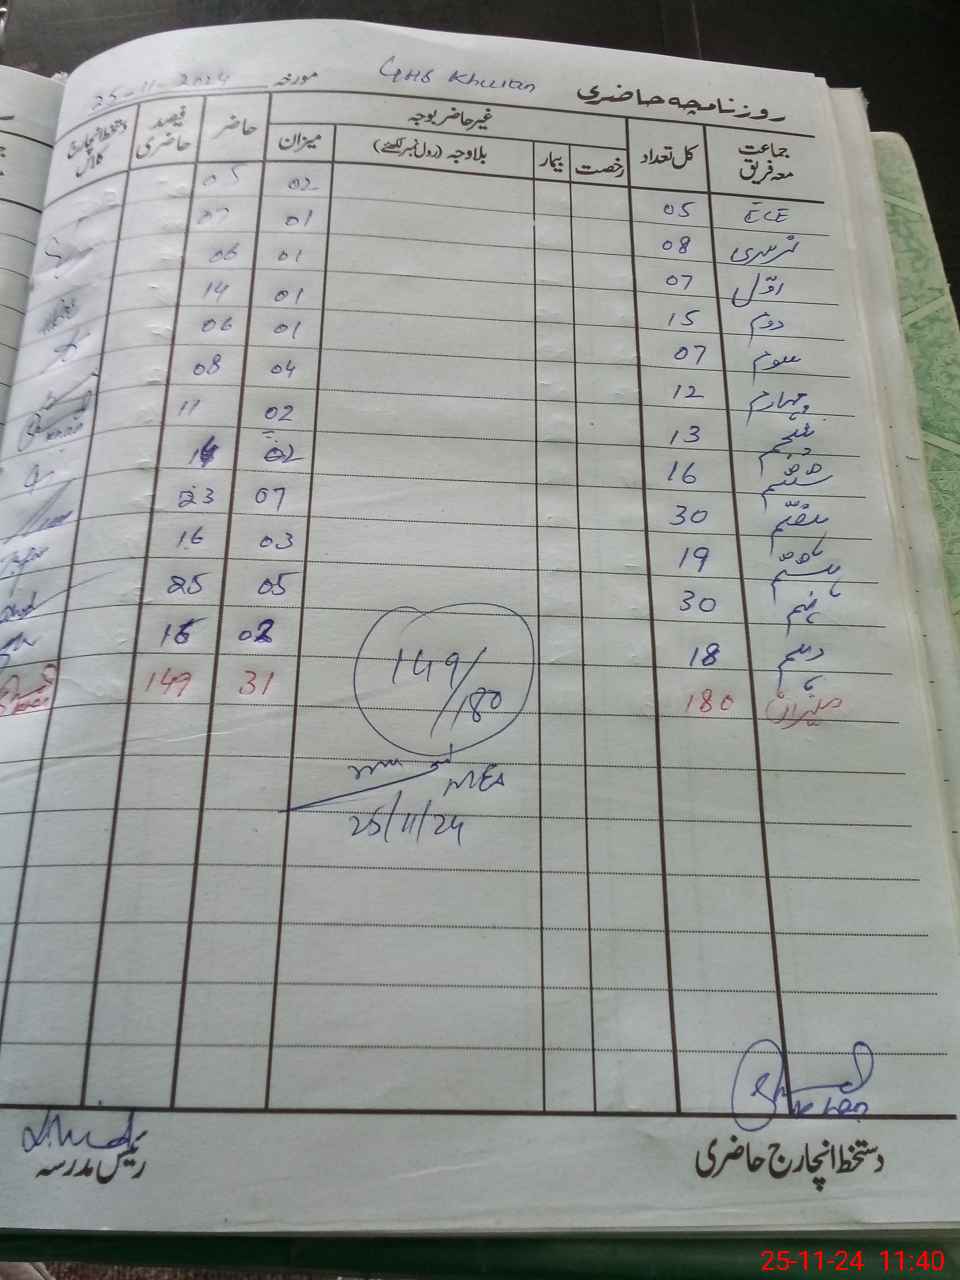 روزنامچہ حاضری GHS Khuian مورخہ 25-11-2024
جماعت معہ فریق کل تعداد غیر حاضر بوجہ حاضر فیصد حاضری دستخط انچارج کلاس
رخصت بیمار بلاوجہ (رول نمبر لکھئے) میزان
ECE 05 02 05
نرسری 08 01 07
اوّل 07 01 06
دوم 15 01 14
سوم 07 01 06
چہارم 12 04 08
پنجم 13 02 11
ششم 16 02 14
ہفتم 30 07 23
ہشتم 19 03 16
نہم 30 05 25
دہم 18 02 16
میزان 180 31 149
149/180
MEA
25/11/24
دستخط انچارج حاضری
رئیس مدرسہ
25-11-24 11:40